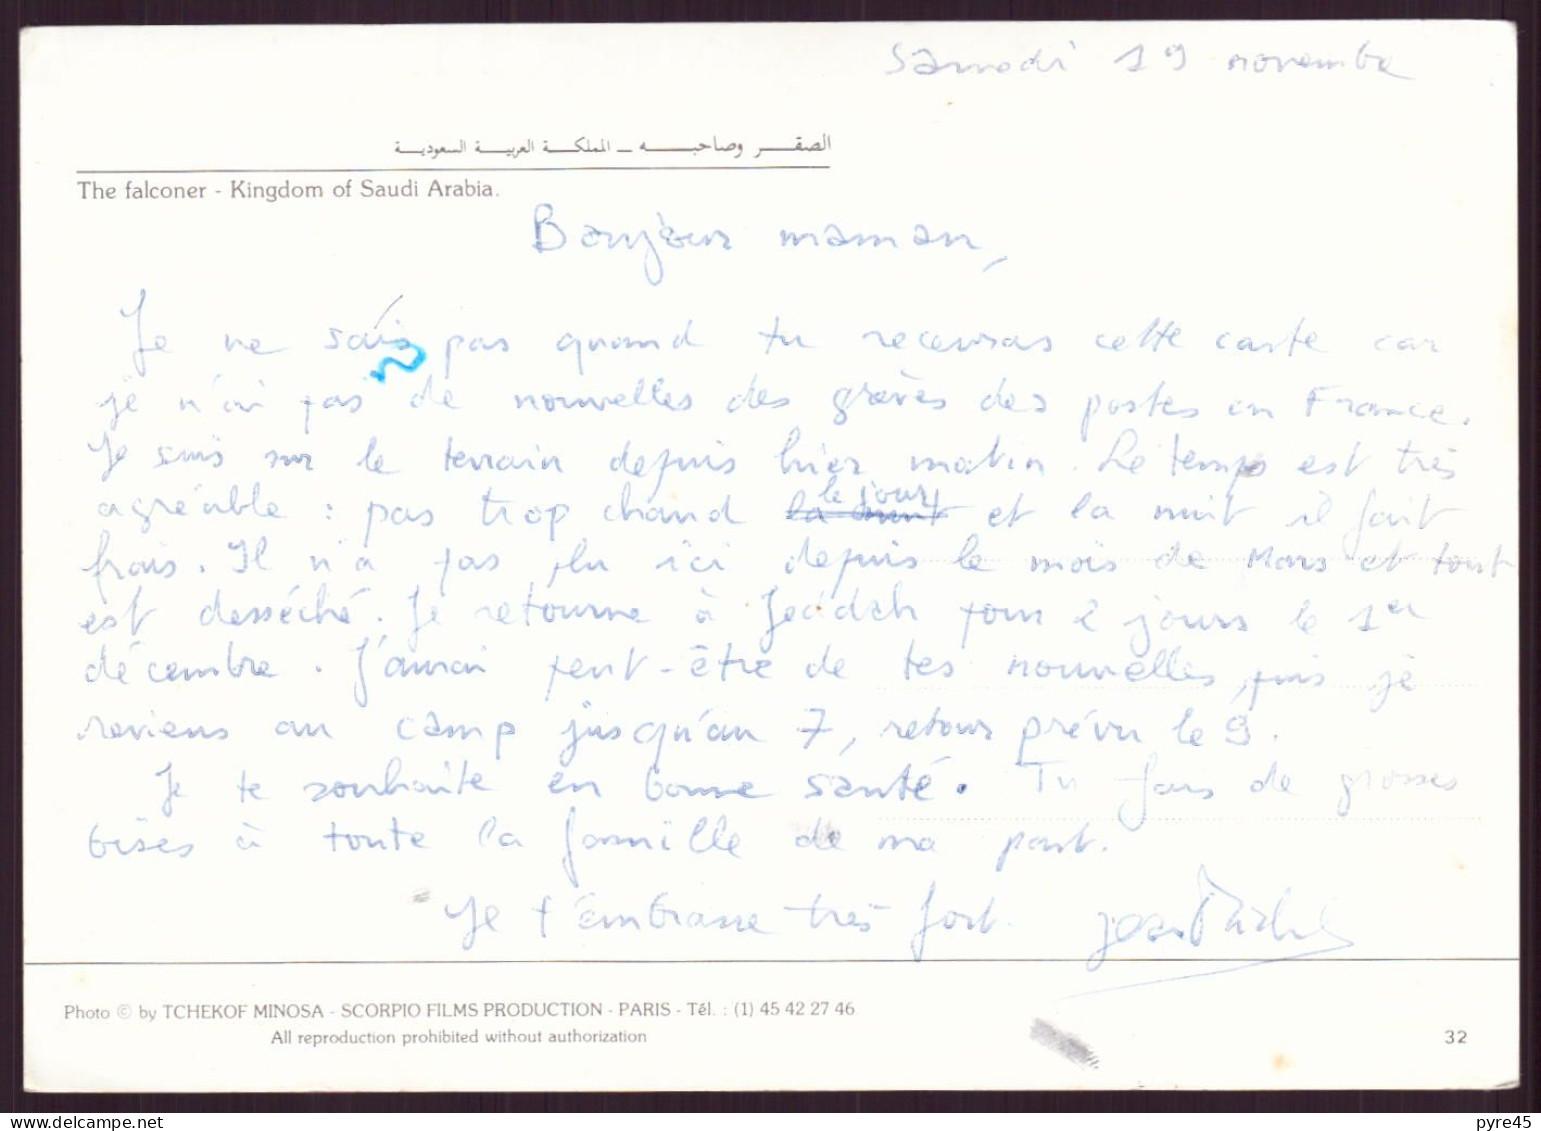 Samedi 19 novembre
الصقر وصاحبه ـ المملكة العربية السعودية
The falconer - Kingdom of Saudi Arabia.
Bonjour maman,
Je ne sais pas quand tu recevras cette carte car
je n'ai pas de nouvelles des grèves des postes en France.
Je suis sur le terrain depuis hier matin. Le temps est très
agréable : pas trop chaud la nuit le jour et la nuit il fait
frais. Il n'a pas plu ici depuis le mois de Mars et tout
est desséché. Je retourne à Jeddah pour 2 jours le 1er
décembre. J'aurai peut-être de tes nouvelles, puis je
reviens au camp jusqu'au 7, retour prévu le 9.
Je te souhaite en bonne santé. Tu fais de grosses
bises à toute la famille de ma part.
Je t'embrasse très fort. Jean Michel
Photo © by TCHEKOF MINOSA - SCORPIO FILMS PRODUCTION - PARIS - Tél. : (1) 45 42 27 46
All reproduction prohibited without authorization
32
delcampe.net
pyre45